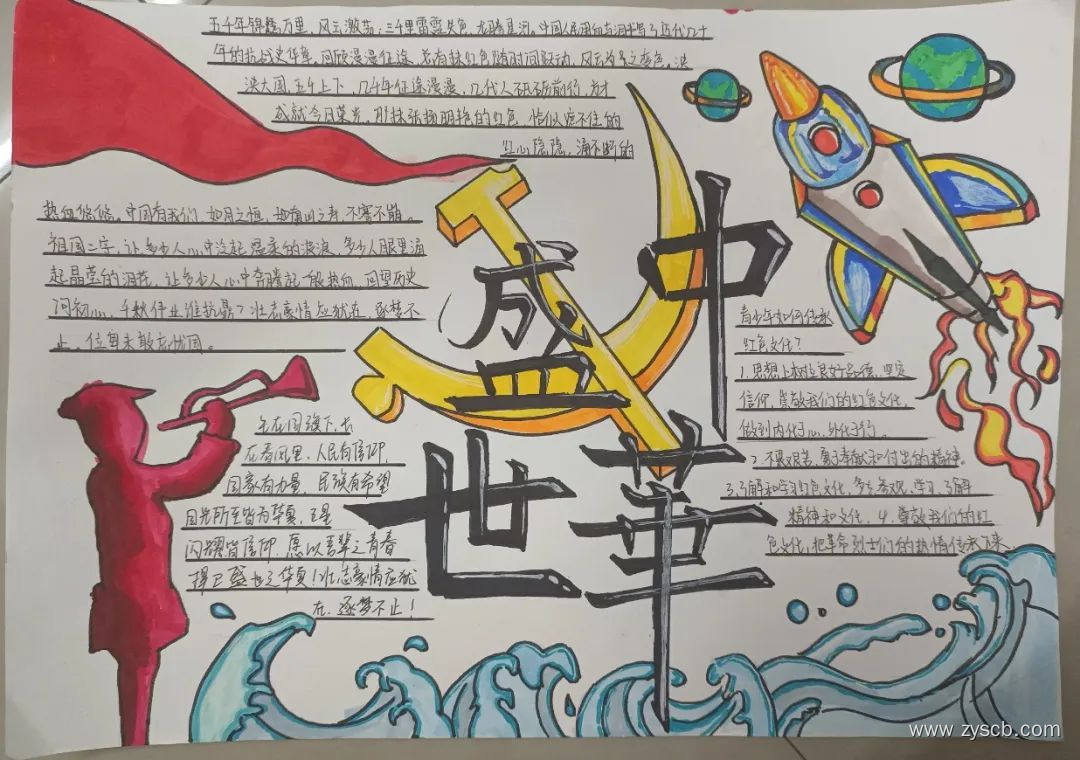 五千年锦绣万里，风云激荡；三千里雷霆失色，龙腾星河。中国人民用血与泪书写了近代几十
年的抗战史华章。回顾漫漫征途，总有抹红色随时间跃动，风云为号之变色。泱
泱大国，五千上下，几千年征途漫漫，几代人砥砺前行，方才
成就今日荣光，那抹张扬明艳的红色，恰似掩不住的
红心隐隐，涌不断的
热血悠悠。中国有我们，如月之恒，如南山之寿，不骞不崩。
祖国二字，让多少人心中泛起温柔的涟漪，多少人眼里涌
起晶莹的泪花，让多少人心中奔腾起一般热血，回望历史
问初心，千秋伟业谁执鼎？壮志豪情应犹在，逐梦不
止，位卑未敢忘忧国。
生在国旗下，长
在春风里，人民有信仰
国家有力量，民族有希望
目光所至皆为华夏，五星
闪耀皆信仰，愿以吾辈之青春
捍卫盛世之华夏！壮志豪情应犹
在，逐梦不止！
中華
盛世
青少年如何传承
红色文化？
1.思想上树立良好品德，坚定
信仰，崇敬我们的红色文化，
做到内化于心，外化于行。
2.不畏艰苦，勇于奉献和付出的精神。
3.了解和学习红色文化，多去参观、学习、了解
精神和文化，4.尊敬我们的红
色文化，把革命烈士们的热情传承下来
www.zyscb.com